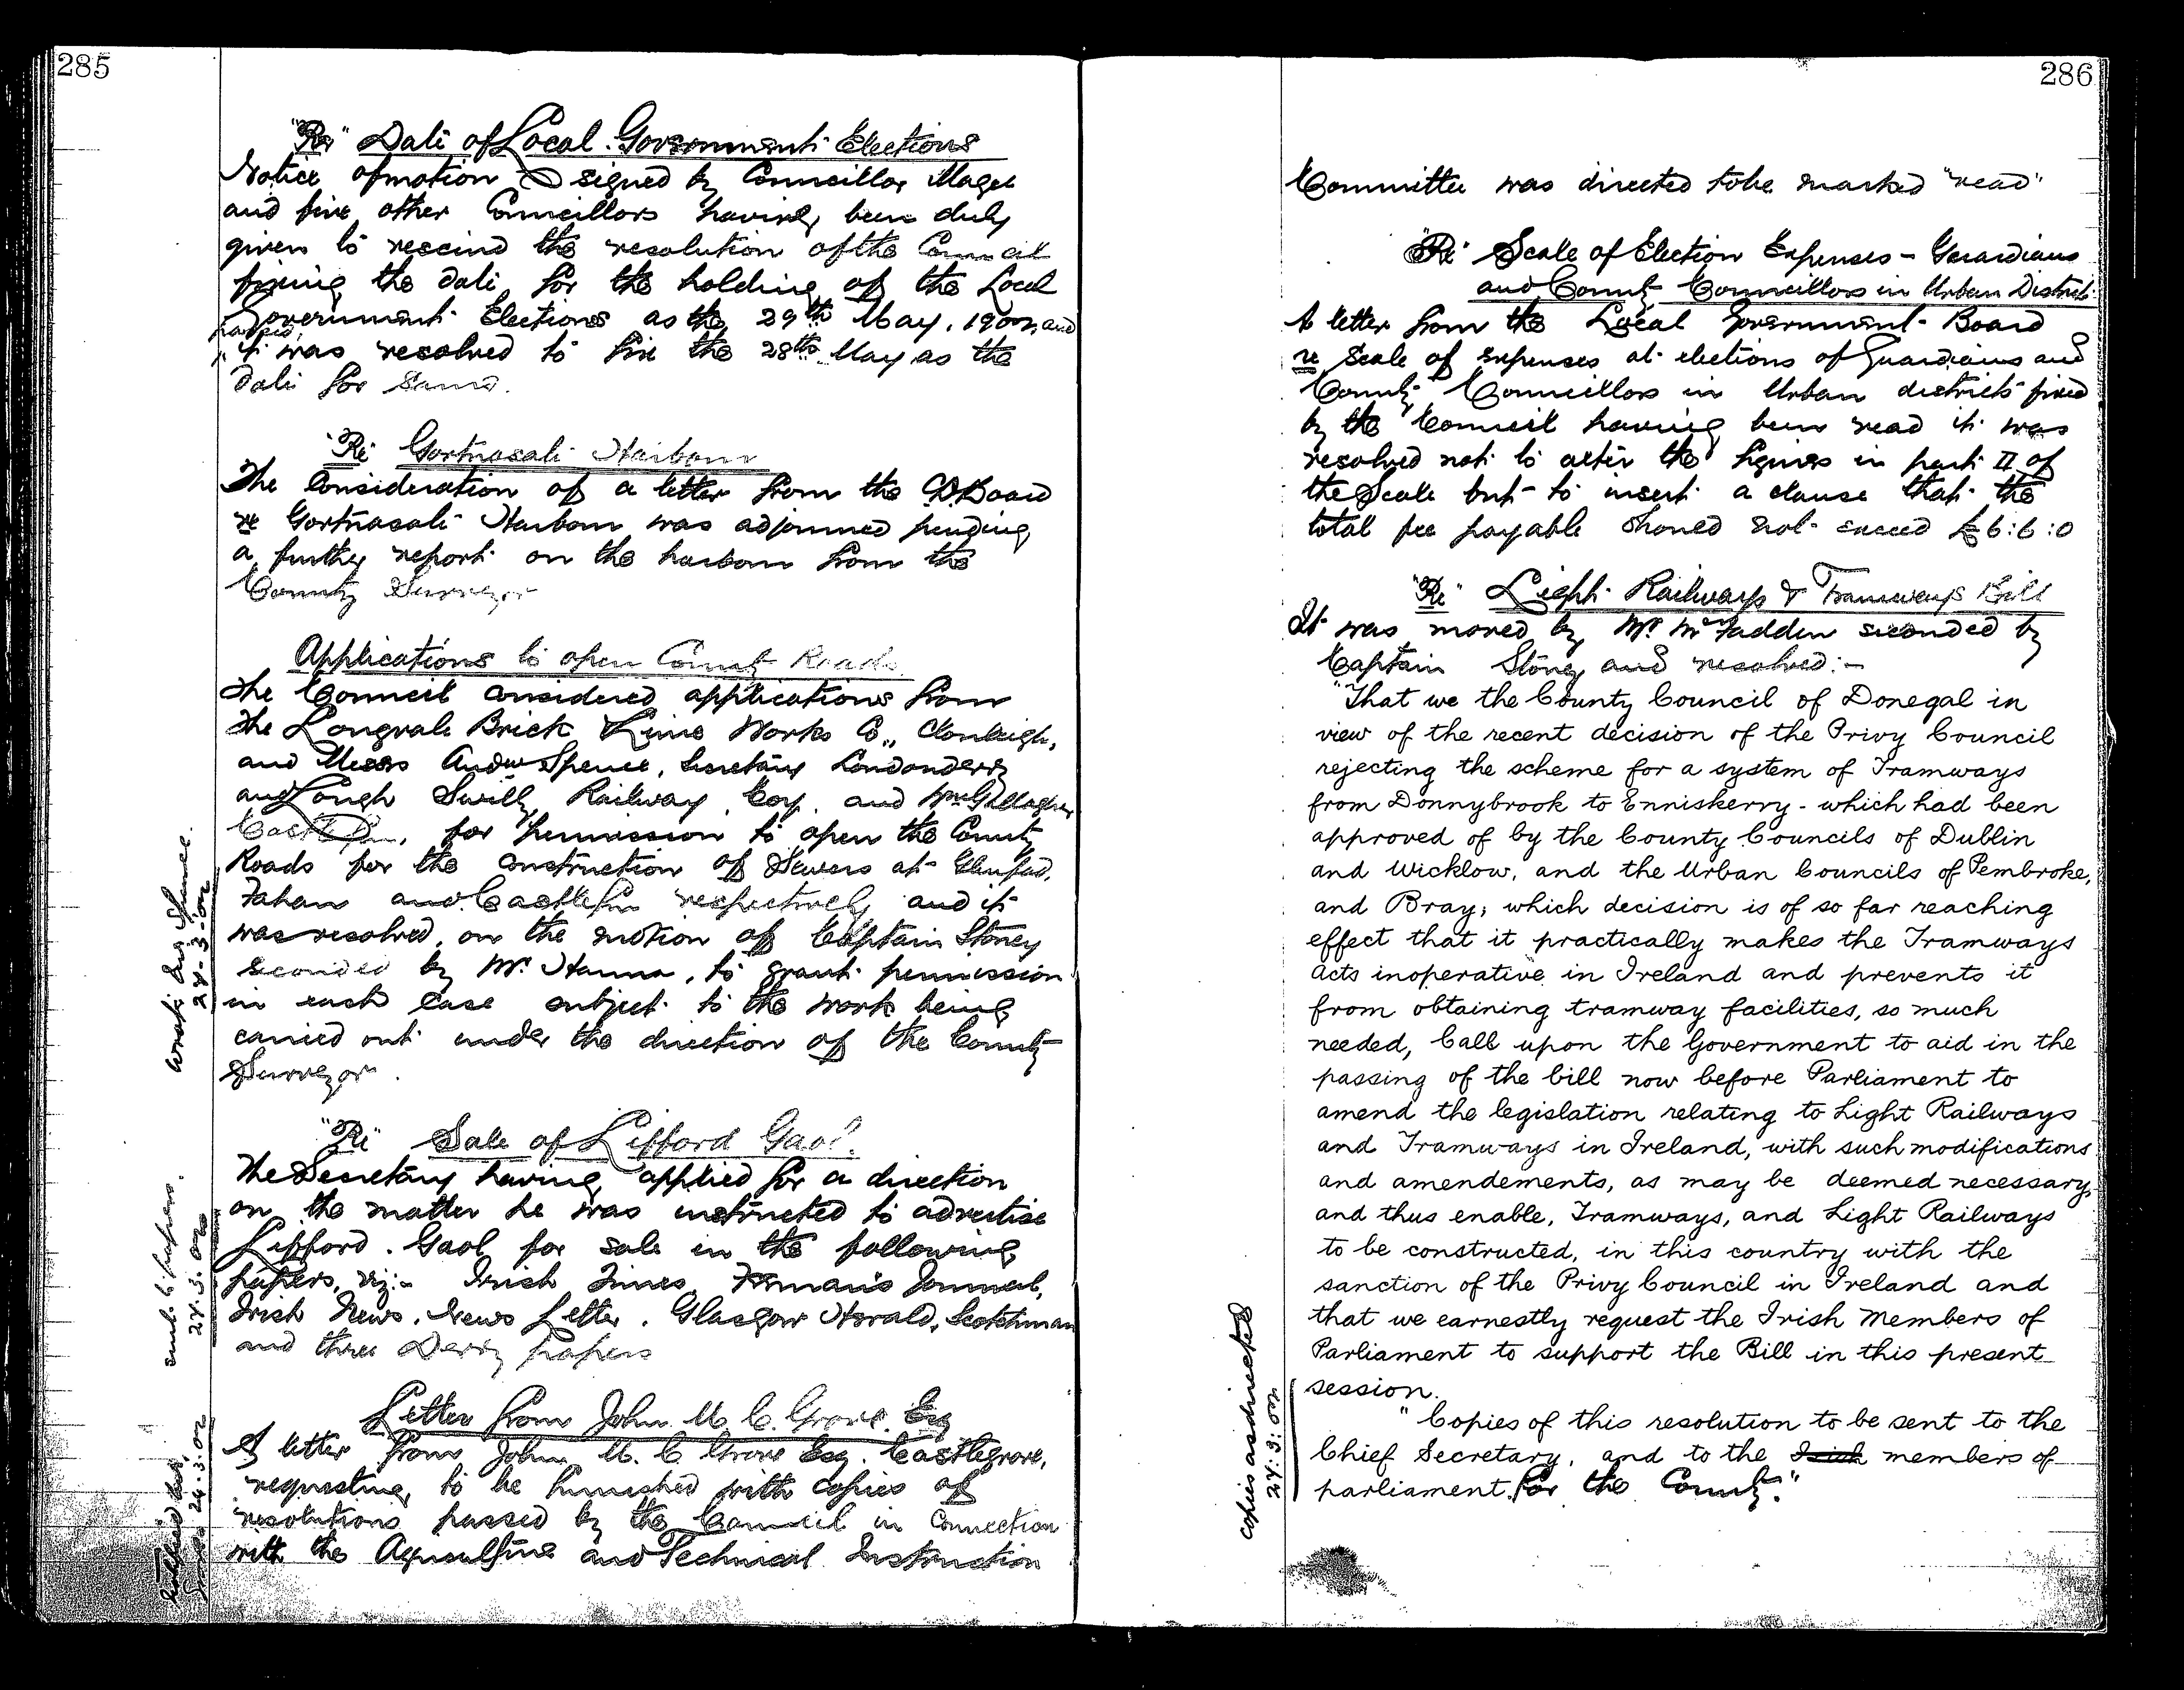 285
"Re" Date of Local Government Elections
Notice of motion signed by Councillor Magee
and five other Councillors having been duly
given to rescind the resolution of the Council
fixing the date for the holding of the Local
Government Elections as the 29th May, 1902, and
it was resolved to fix the 28th May as the
date for same.
"Re" Gortnasate Harbour
The Consideration of a letter from the C.D. Board
re Gortnasate Harbour was adjourned pending
a further report on the harbour from the
County Surveyor
Applications to open County Roads
The Council considered applications from
The Longvale Brick & Lime Works Co., Clonleigh,
and Messrs Andw Spence, Secretary Londonderry
and Lough Swilly Railway Coy. and Wm Gallagher
Castlefin, for permission to open the County
Roads for the construction of Sewers at Glenfad,
Fahan and Castlefin respectively and it
was resolved, on the motion of Captain Stoney
seconded by Mr. Hanna, to grant permission
in each case subject to the work being
carried out under the direction of the County
Surveyor.
Wrote And Spence
24-3-02
"Re" Sale of Lifford Gaol.
The Secretary having applied for a direction
on the matter he was instructed to advertise
Lifford Gaol for sale in the following
papers, viz:- Irish Times, Freman's Journal,
Irish News, News Letter, Glasgow Herald, Scotchman
and three Derry papers
sent to papers.
24.3.02
Letter from John M. C. Grove Esq
A letter from John M. C Grove Esq. Castlegrove,
requesting to be furnished with copies of
resolutions passed by the Council in Connection
with the Agriculture and Technical Instruction
24.3.02
286
Committee was directed to be marked "read"
"Re" Scale of Election Expenses - Guardians
and County Councillors in Urban Districts
A letter from the Local Government Board
re Scale of expenses at elections of Guardians and
County Councillors in Urban districts fixed
by the Council having been read it was
resolved not to alter the figures in part II of
the Scale but to insert a clause that the
total fee payable should not exceed £6:6:0
"Re" Light Railways & Tramways Bill
It was moved by Mr. McFadden seconded by
Captain Stoney and resolved:-
"That we the County Council of Donegal in
view of the recent decision of the Privy Council
rejecting the scheme for a system of Tramways
from Donnybrook to Enniskerry - which had been
approved of by the County Councils of Dublin
and Wicklow, and the Urban Councils of Pembroke,
and Bray; which decision is of so far reaching
effect that it practically makes the Tramways
Acts inoperative in Ireland and prevents it
from obtaining tramway facilities, so much
needed, Call upon the Government to aid in the
passing of the bill now before Parliament to
amend the legislation relating to Light Railways
and Tramways in Ireland, with such modifications
and amendements, as may be deemed necessary,
and thus enable, Tramways, and Light Railways
to be constructed, in this country with the
sanction of the Privy Council in Ireland and
that we earnestly request the Irish Members of
Parliament to support the Bill in this present
session.
"Copies of this resolution to be sent to the
Chief Secretary, and to the Irish members of
parliament for the County."
copies as directed
24:3:02